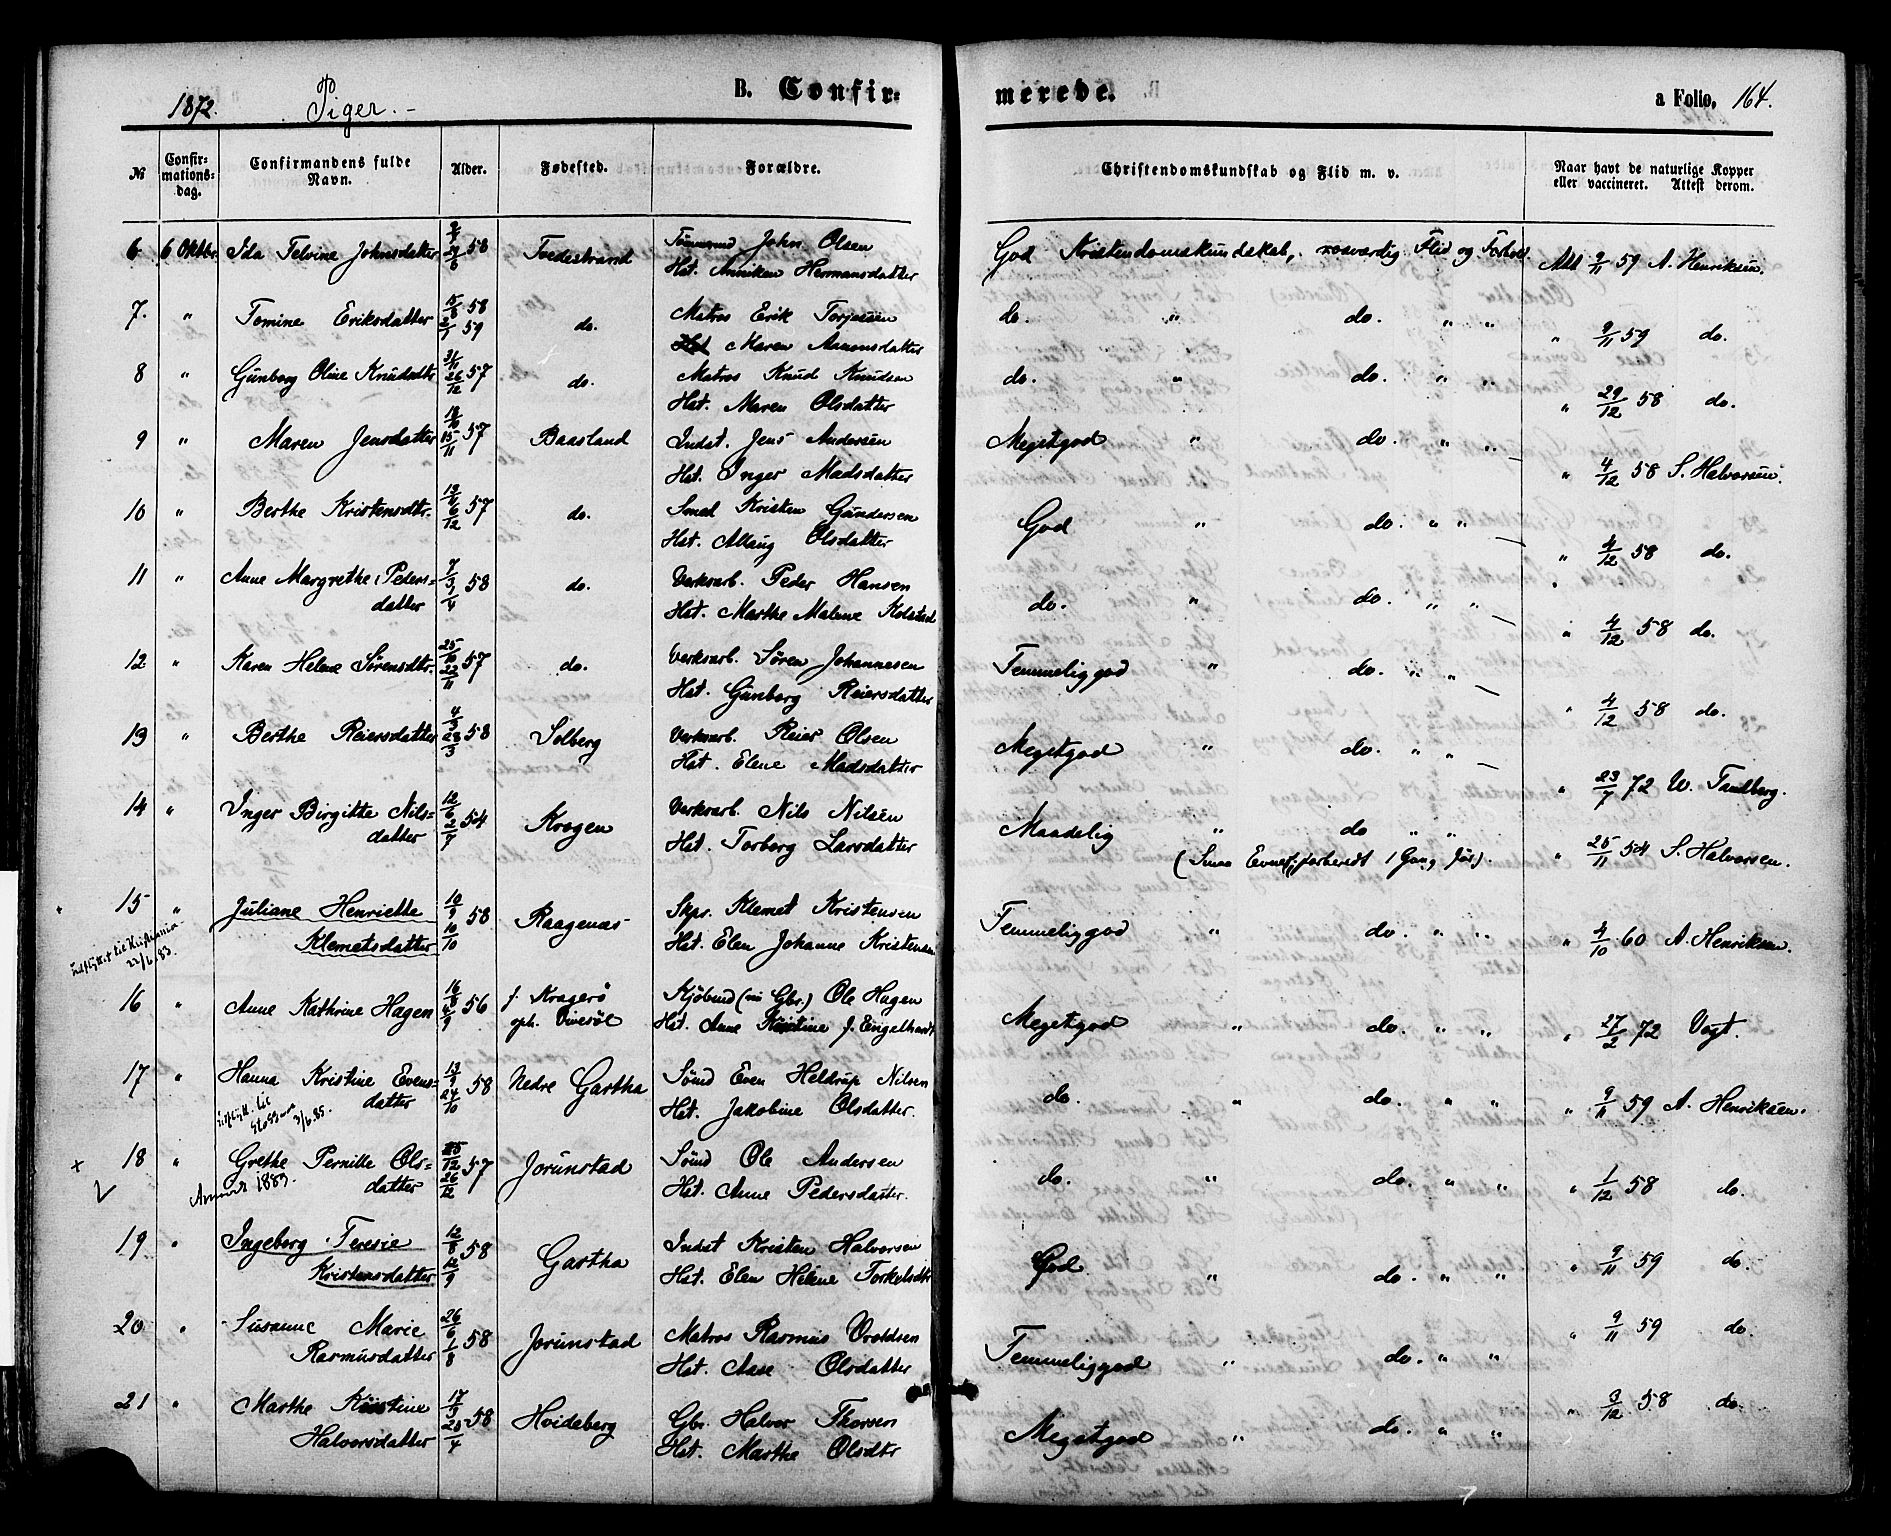 1872. Piger.- B. Confir= merede. a Folio, 164.
№ Confir=mations=dag. Confirmandens fulde Navn. Alder. Fødested. Forældre. Christendomskundskab og Flid m. v. Naar havt de naturlige Kopper eller vaccineret. Attest derom.
6 6 Oktbr. Ida Telvine Johnsdatter 58 Tvedestrand John Olsen God Kristendomskundskab, rosværdig Flid og Forhold Att 9/11 59 A. Henriksen.
Hst. Anniken Hermansdatter
7. " Tomine Eriksdatter 15/8 58 do. Matros Erik Torjussen do. " do. " " " 9/11 59 do.
59 Hst Maren Aanonsdatter
8 " Gunborg Oline Knudsdtr 26/12 57 do. Matros Knud Knudsen do. " do. " " " 29/12 58 do.
Hst. Maren Olsdatter
9 " Maren Jensdatter 15/11 57 Baasland Indst. Jens Andersen Megetgod " do. " " " 4/12 58 S. Halvorsen.
Hst. Inger Madsdatter
10 " Berthe Kristensdtr. 6/12 57 do. Smed Kristen Gundersen God " do. " " " 4/12 58 do.
Hst. Allaug Olsdatter
11 " Anne Margrethe Peders= 7/3 58 do. Verksarb. Peder Hansen do. " do. " " " 4/12 58 do.
datter 1/4 Hst. Marthe Malene Kolstad
12 " Karen Helene Sørensdtr. 25/10 22/11 57 do. Verksarb. Søren Johannesen Temmeliggod " do. " " " 4/12 58 do.
Hst. Gunborg Reiersdatter
13 " Berthe Reiersdatter 4/3 23/3 58 Solberg Verksarb. Reier Olsen Megetgod " do. " " " 23/7 72 W. Tandberg.
Hst. Elene Madsdatter
14 " Inger Birgitte Nils= 12/6 54 Krogen Verksarb. Nils Nilsen Maadelig " do " " " 25/11 54 S. Halvorsen.
datter 2/7 Hst. Torborg Larsdatter (Smaa Evner, forberedt 1 Gang før).
15 " Juliane Henriette 10/9 58 Raagenæs Skps. Klemet Kristensen Temmeliggod " do. " " " 4/10 60 A. Henriksen.
Klemetsdatter 10/10 Hst. Elen Johanne Kristensen
Udflyttet til Kristiania 22/6.83.
16 " Anne Kathrine Hagen 16/8 56 f. Kragerø Kjøbmd (nu Gbr.) Ole Hagen Megetgod " do. " " " 27/2 72 Vogt.
oph. Hst. Anne Kristine f. Engelhardt
17 " Hanna Kristine Evens= 13/9 58 Nedre Gartha Sømd Even Heldrup Nilsen do. " do. " " " 9/11 59 A. Henriksen.
datter 24/10 Hst. Jakobine Olsdatter.
Udflytt. til 3/6.85.
x 18 " Grethe Pernille Ols= 57 Jorunstad Sømd Ole Andersen do. " do. " " " 1/12 58 do.
datter 26/12 Hst. Anne Pedersdatter.
1883.
19 " Ingeborg Teresie 12/8 58 Gartha Indst Kristen Halvorsen God " do. " " " 9/11 59 do.
Kristensdatter 12/9 Hst. Elen Helene Torkelsdtr
20 " Susanne Marie 26/6 58 Jorunstad Matros Rasmus Oroldsen Temmeliggod " do. " " " 9/11 59 do.
Rasmusdatter 1/8 Hst. Aase Olsdatter
21 " Marthe Kristine 17/3 58 Hvideberg Gbr. Halvor Thorsen Megetgod " do. " " " 3/12 58 do.
Halvorsdatter Hst. Marthe Olsdtr